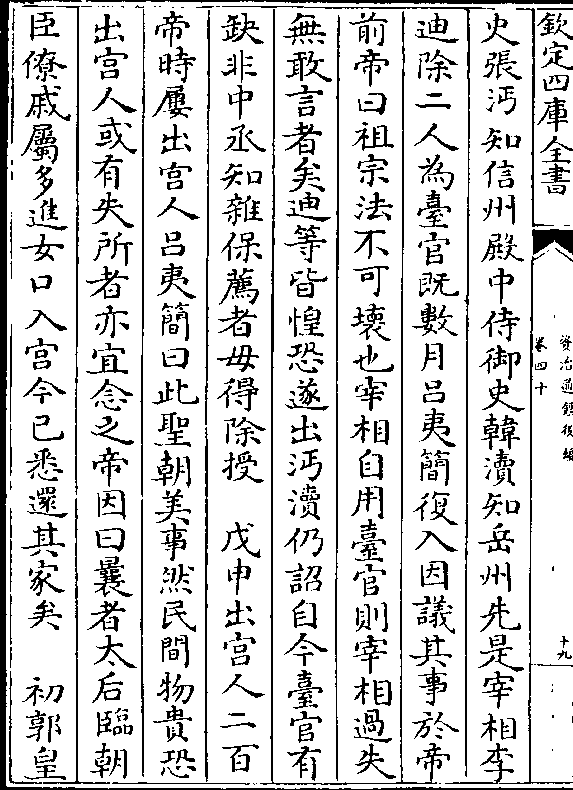 欽定四庫全書
資治通鑑後編
卷四十
十九
史張沔知信州殿中侍御史韓瀆知岳州先是宰相李
迪除二人為臺官既數月呂夷簡復入因議其事於帝
前帝曰祖宗法不可壊也宰相自用臺官則宰相過失
無敢言者矣迪等皆惶恐遂出沔瀆仍詔自今臺官有
缺非中丞知雜保薦者毋得除授　戊申出宮人二百
帝時屢出宮人呂夷簡曰此聖朝美事然民間物貴恐
出宮人或有失所者亦宜念之帝因曰曩者太后臨朝
臣僚戚屬多進女口入宮今已悉還其家矣　初郭皇